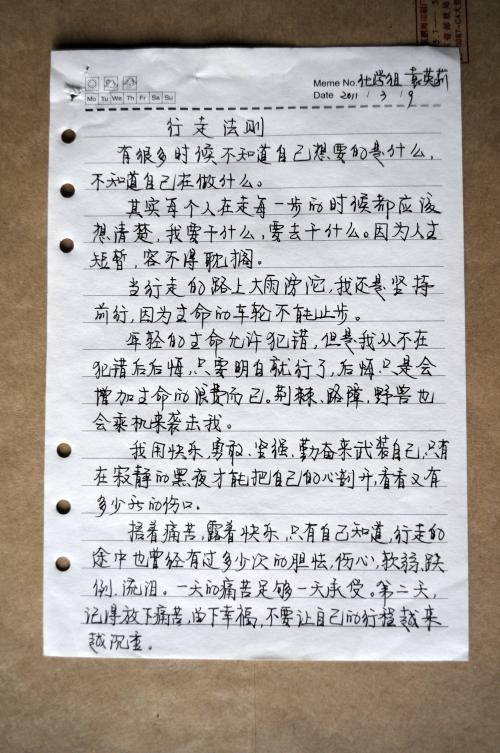 Meme No. 化学组 袁英莉
Mo Tu We Th Fr Sa Su
Date 2011 / 3 / 9
行走法则
有很多时候不知道自己想要的是什么,
不知道自己在做什么。
其实每个人在走每一步的时候都应该
想清楚,我要干什么,要去干什么。因为人生
短暂,容不得耽搁。
当行走的路上大雨滂沱,我还是坚持
前行,因为生命的车轮不能止步。
年轻的生命允许犯错,但是我从不在
犯错后后悔,只要明白就行了,后悔只是会
增加生命的浪费而已。荆棘、路障,野兽也
会乘机来袭击我。
我用快乐,勇敢、坚强、勤奋来武装自己,只有
在寂静的黑夜才能把自己的心剖开,看看又有
多少新的伤口。
捂着痛苦,露着快乐,只有自己知道,行走的
途中也曾经有过多少次的胆怯,伤心,软弱,跌
倒,流泪。一天的痛苦足够一天承受。第二天,
记得放下痛苦,留下幸福,不要让自己的行程越来
越沉重。